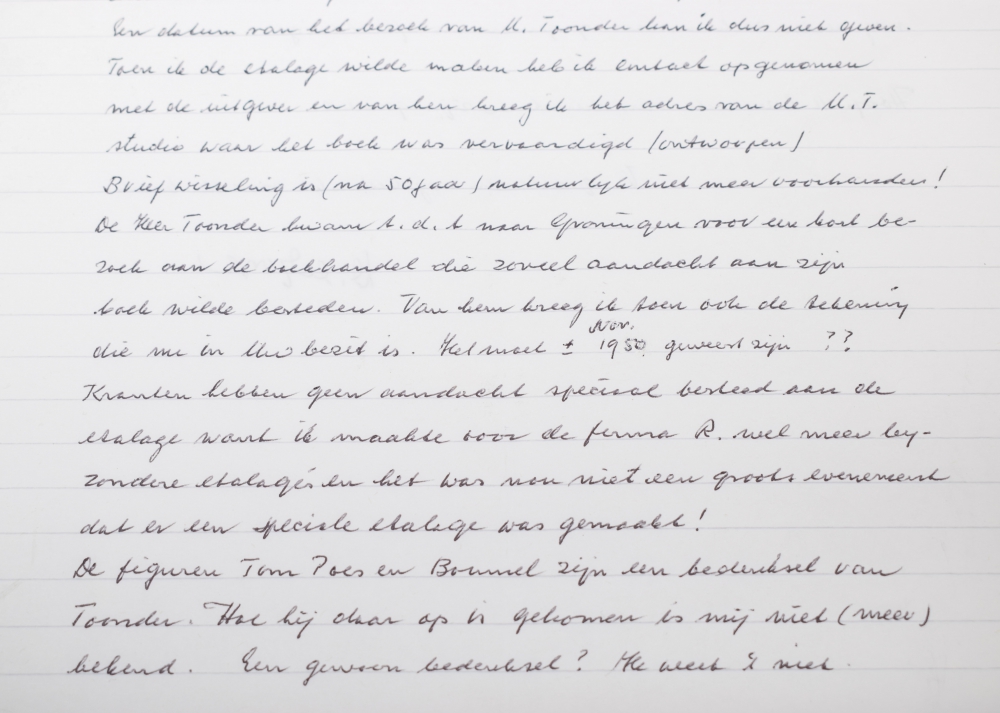 Een datum van het bezoek van M. Toonder kan ik dus niet geven.
Toen ik de etalage wilde maken heb ik contact opgenomen
met de uitgever en van hen kreeg ik het adres van de M.T.
studio waar het boek was vervaardigd (ontworpen)
Briefwisseling is (na 50 jaar) natuurlijk niet meer voorhanden!
De Heer Toonder kwam t.d.t naar Groningen voor een kort be-
zoek aan de boekhandel die zoveel aandacht aan zijn
boek wilde besteden. Van hem kreeg ik toen ook de tekening
die nu in Uw bezit is. Het moet ± Nov. 1950 geweest zijn ??
Kranten hebben geen aandacht speciaal besteed aan de
etalage want ik maakte voor de firma R. wel meer by-
zondere etalages en het was nou niet een groots evenement
dat er een speciale etalage was gemaakt!
De figuren Tom Poes en Bommel zijn een bedenksel van
Toonder. Hoe hij daar op is gekomen is mij niet (meer)
bekend. Een gewoon bedenksel? Ik weet 't niet.